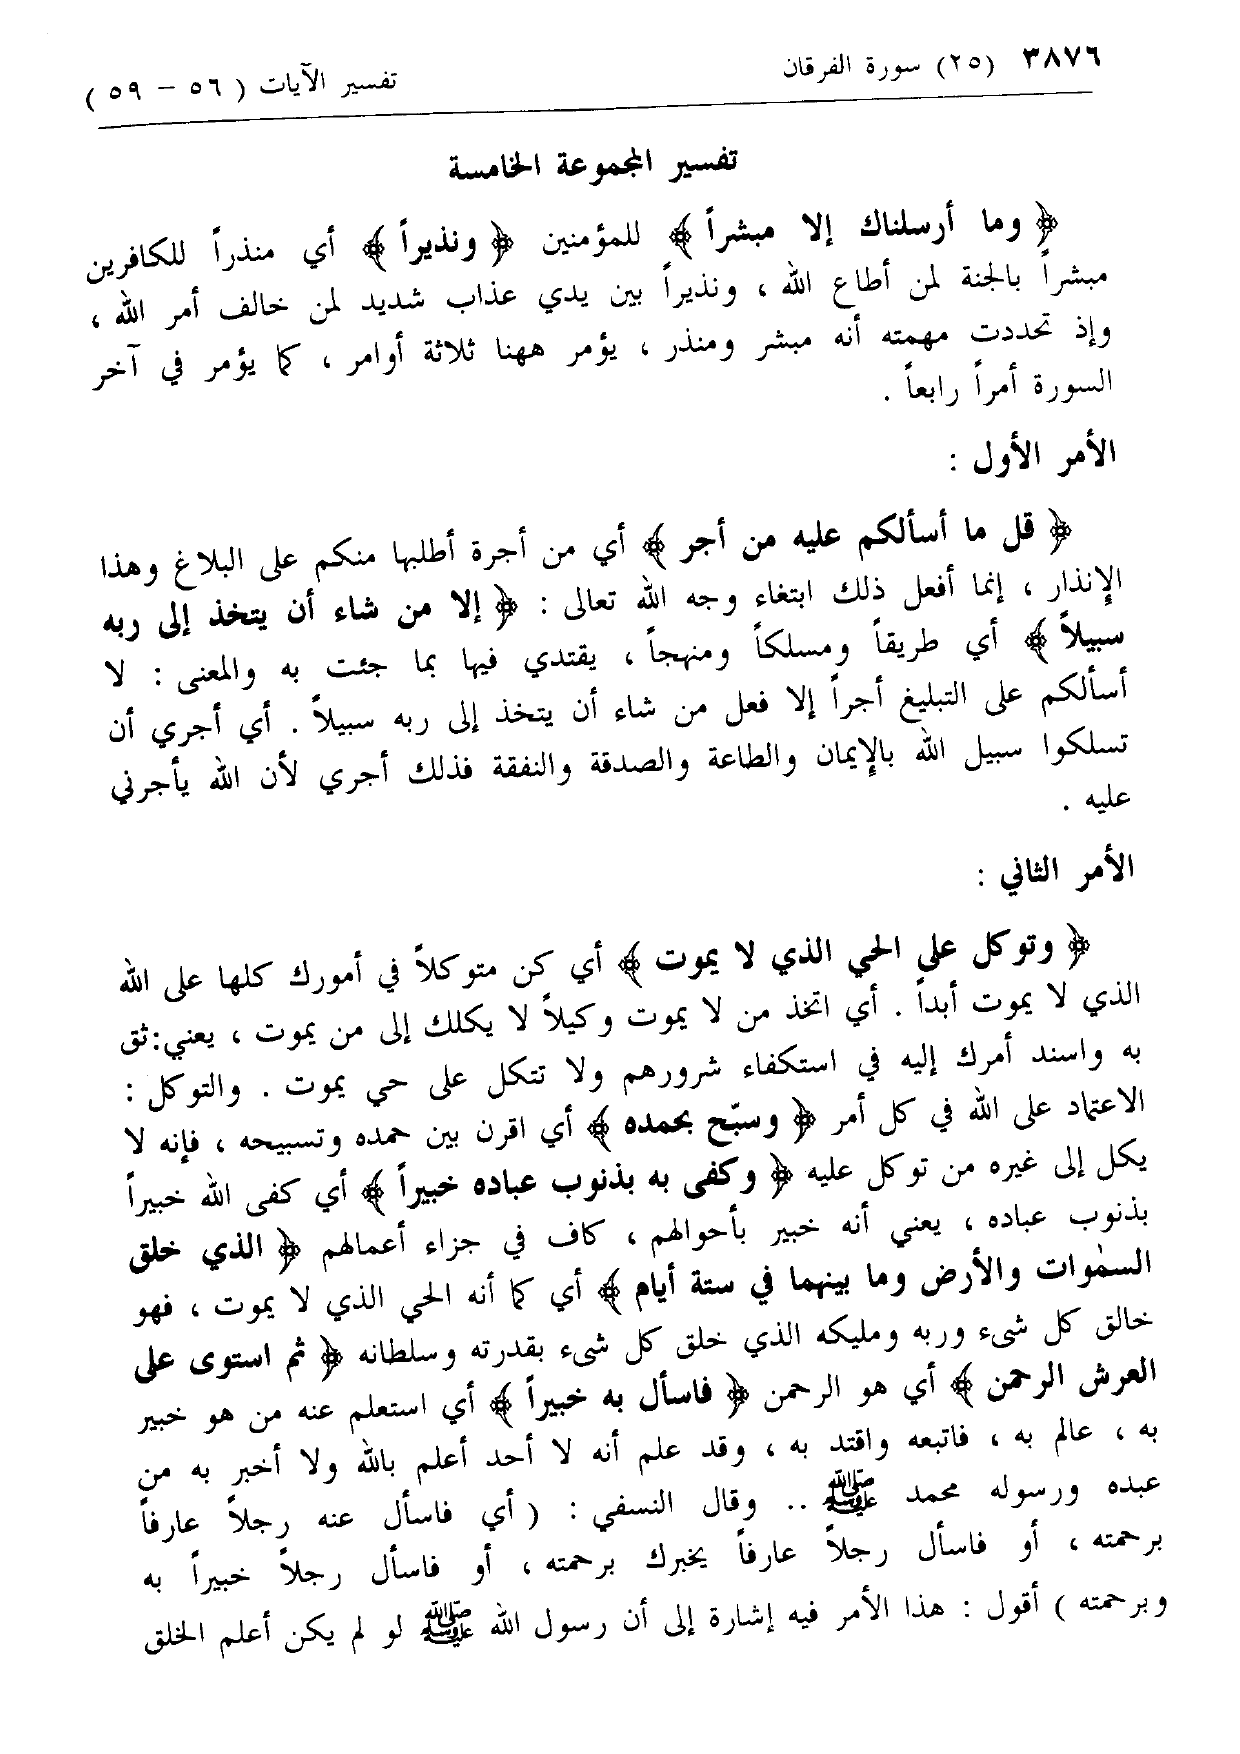 ٣٨٧٦ (٢٥) سورة الفرقان تفسير الآيات ( ٥٦ – ٥٩ )
تفسير المجموعة الخامسة
﴿ وما أرسلناك إلا مبشراً ﴾ للمؤمنين ﴿ ونذيراً ﴾ أي منذراً للكافرين
مبشراً بالجنة لمن أطاع الله ، ونذيراً بين يدي عذاب شديد لمن خالف أمر الله ،
وإذ تحددت مهمته أنه مبشر ومنذر ، يؤمر ههنا ثلاثة أوامر ، كما يؤمر في آخر
السورة أمراً رابعاً .
الأمر الأول :
﴿ قل ما أسألكم عليه من أجر ﴾ أي من أجرة أطلبها منكم على البلاغ وهذا
الإنذار ، إنما أفعل ذلك ابتغاء وجه الله تعالى : ﴿ إلا من شاء أن يتخذ إلى ربه
سبيلاً ﴾ أي طريقاً ومسلكاً ومنهجاً ، يقتدي فيها بما جئت به والمعنى : لا
أسألكم على التبليغ أجراً إلا فعل من شاء أن يتخذ إلى ربه سبيلاً . أي أجري أن
تسلكوا سبيل الله بالإيمان والطاعة والصدقة والنفقة فذلك أجري لأن الله يأجرني
عليه .
الأمر الثاني :
﴿ وتوكل على الحي الذي لا يموت ﴾ أي كن متوكلاً في أمورك كلها على الله
الذي لا يموت أبداً . أي اتخذ من لا يموت وكيلاً لا يكلك إلى من يموت ، يعني:ثق
به واسند أمرك إليه في استكفاء شرورهم ولا تتكل على حي يموت . والتوكل :
الاعتماد على الله في كل أمر ﴿ وسبّح بحمده ﴾ أي اقرن بين حمده وتسبيحه ، فإنه لا
يكل إلى غيره من توكل عليه ﴿ وكفى به بذنوب عباده خبيراً ﴾ أي كفى الله خبيراً
بذنوب عباده ، يعني أنه خبير بأحوالهم ، كاف في جزاء أعمالهم ﴿ الذي خلق
السمٰوات والأرض وما بينهما في ستة أيام ﴾ أي كما أنه الحي الذي لا يموت ، فهو
خالق كل شىء وربه ومليكه الذي خلق كل شىء بقدرته وسلطانه ﴿ ثم استوى على
العرش الرحمن ﴾ أي هو الرحمن ﴿ فاسأل به خبيراً ﴾ أي استعلم عنه من هو خبير
به ، عالم به ، فاتبعه واقتد به ، وقد علم أنه لا أحد أعلم بالله ولا أخبر به من
عبده ورسوله محمد ﷺ .. وقال النسفي : ( أي فاسأل عنه رجلاً عارفاً
برحمته ، أو فاسأل رجلاً عارفاً يخبرك برحمته ، أو فاسأل رجلاً خبيراً به
وبرحمته ) أقول : هذا الأمر فيه إشارة إلى أن رسول الله ﷺ لو لم يكن أعلم الخلق